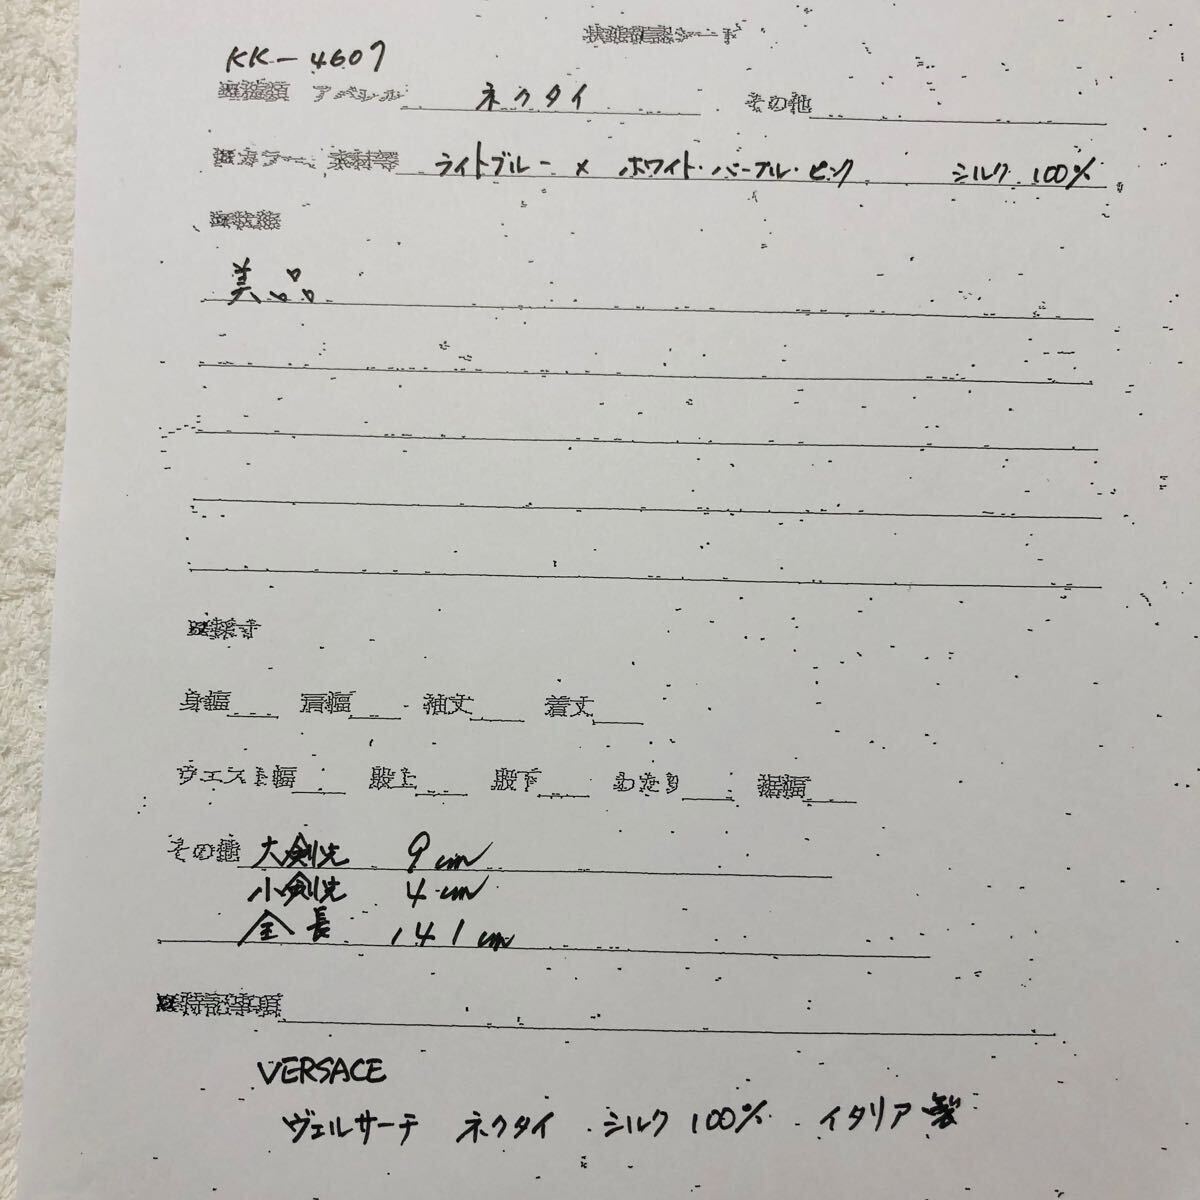 状態確認シート
KK-4607
■種類 アパレル ネクタイ その他
■カラー、素材等 ライトブルー × ホワイト・パープル・ピンク シルク 100%
■状態
美品
■採寸
身幅 肩幅 袖丈 着丈
ウエスト幅 股上 股下 わたり 裾幅
その他 大剣先 9cm
小剣先 4cm
全長 141cm
■特記事項
VERSACE
ヴェルサーチ ネクタイ シルク 100% イタリア製